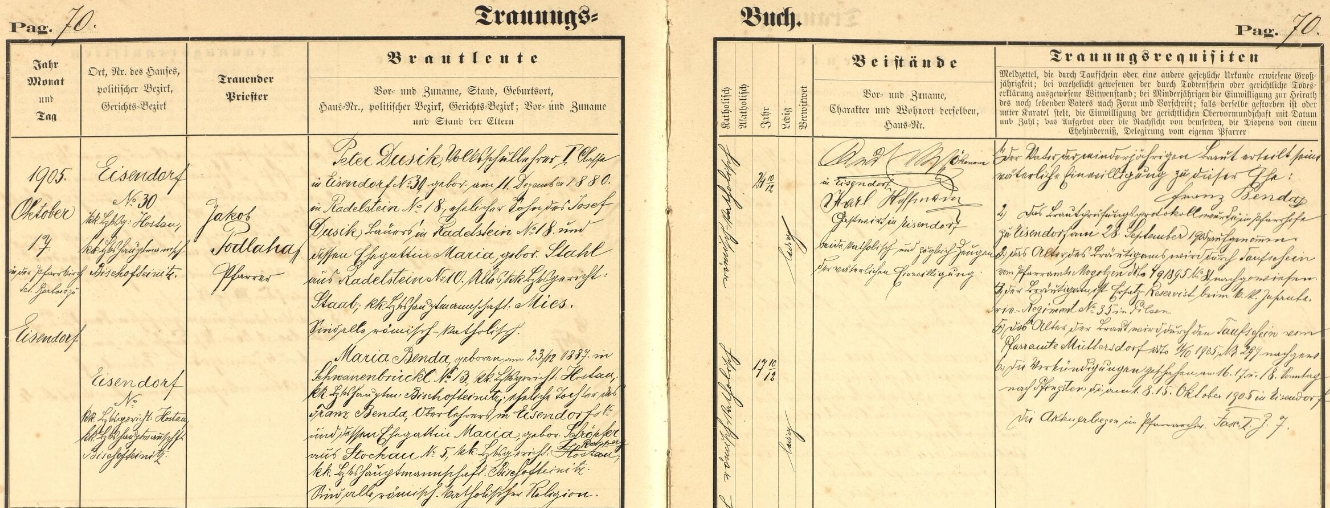 Pag. 70.
Trauungs=
Buch.
Pag. 70.
Jahr
Monat
und
Tag
Ort, Nr. des Hauses,
politischer Bezirk,
Gerichts-Bezirk
Trauender
Priester
Brautleute
Vor- und Zuname, Stand, Geburtsort,
Haus-Nr., politischer Bezirk, Gerichts-Bezirk; Vor- und Zuname
und Stand der Eltern
1905
Oktober
17
Eisendorf
Eisendorf
No 30
kk. Hostau,
kk.
Bischofteinitz.
Jakob
Podlahaf
Pfarrer
Peter Dusik, Volksschullehrer I. Classe
in Eisendorf No 30 gebor. am 11. Dezember 1880.
in Radelstein No 18, ehelicher Sohn des Josef
Dusik, Bauers in Radelstein No 18 und
dessen Ehegattin Maria, gebor. Stahl
aus Radelstein No 10.
Staab, kk. Bzkshauptmannschaft Mies.
Sind alle römisch-katholisch.
Eisendorf
No
kk. Bzksgericht Hostau
kk. Bzkshauptmannschft.
Bischofteinitz
Maria Benda, geboren am 23/12 1887 in
Schwanenbrückl No 13, kk. Bzksgericht Hostau,
kk. Bzkshauptm. Bischofteinitz, eheliche Tochter des
Franz Benda, Oberlehrers in Eisendorf
und dessen Ehegattin Maria, gebor. Schröpfer
aus Stockau No 5, kk. Bzksgericht
kk. Bzkshauptmannschaft Bischofteinitz.
Sind alle römisch-katholischer Religion.
Katholisch
Akatholisch
Jahr
Ledig
Verwitwet
Beistände
Vor- und Zuname,
Charakter und Wohnort derselben,
Haus-Nr.
Trauungsrequisiten
Meldzettel, die durch Taufschein oder eine andere gesetzliche Urkunde erwiesene Groß-
jährigkeit; bei verehelicht gewesenen der durch Todtenschein oder gerichtliche Todes-
erklärung ausgewiesene Witwenstand; bei Minderjährigen die Einwilligung zur Heirath
des noch lebenden Vaters nach Form und Vorschrift; falls derselbe gestorben ist oder
unter Kuratel steht, die Einwilligung der gerichtlichen Obervormundschaft mit Datum
und Zahl; das Aufgebot oder die Nachsicht von demselben, die Dispens von einem
Ehehinderniß, Delegirung vom eigenen Pfarrer
römisch katholisch
24 10/12
ledig
römisch katholisch
17 10/12
ledig
in Eisendorf
Karl Hoffmann
Gastwirt in Eisendorf
beide katholisch und zugleich Zeugen
der väterlichen Einwilligung.
Der Vater der minderjährigen Braut erteilt seine
väterliche Einwilligung zu dieser Ehe:
Franz Benda
2) Das Brautprüfungsprotokoll wurde im Pfarrhofe
zu Eisendorf am 28. September 1905 aufgenommen.
3) das Alter des Bräutigams wird durch Taufschein
vom Pfarramte nachgewiesen
4) der Bräutigam ist Ersatz-Reservist beim k. k. Infante-
rie-Regiment No 35 in Pilsen
5) das Alter der Braut wird durch den Taufschein vom
Pfarramte Muttersdorf dto 1905, No 297 nachgew.
6) die Verkündigungen geschehen am 16. 17. u. 18. Sonntage
nach Pfingsten, d. i. am 1. 8. 15. Oktober 1905 in Eisendorf
Die Akten erliegen im Pfarrarchiv. Fasc. I. J. 7.